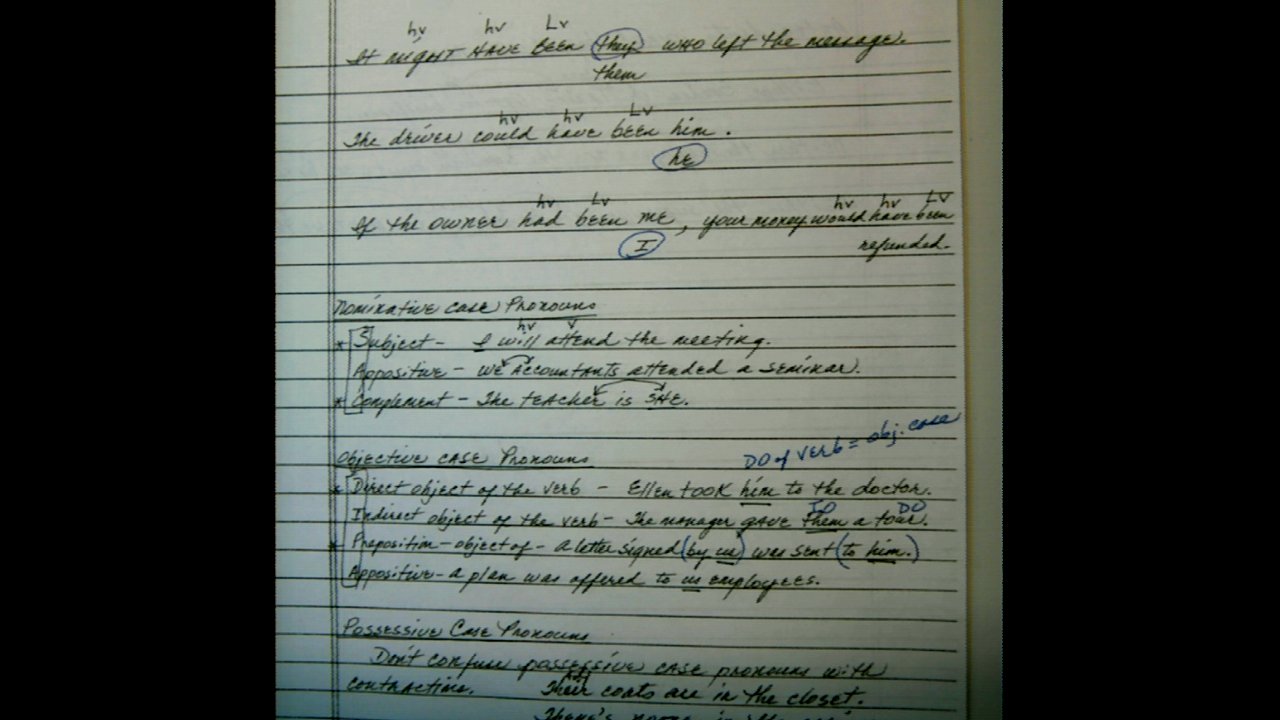 hv hv Lv
It might HAVE BEEN they who left the message.
them
hv hv Lv
The driver could have been him.
he
hv Lv hv hv Lv
If the owner had been me, your money would have been
I refunded.
Nominative Case Pronouns
hv v
* Subject - I will attend the meeting.
Appositive - We Accountants attended a seminar.
* Complement - The teacher is SHE.
DO of verb = obj. case
Objective Case Pronouns
* Direct object of the verb - Ellen took him to the doctor.
IO DO
Indirect object of the verb - The manager gave them a tour.
* Preposition - object of - a letter signed (by us) was sent (to him.)
Appositive - a plan was offered to us employees.
Possessive Case Pronouns
Don't confuse possessive case pronouns with
contractions. Their coats are in the closet.